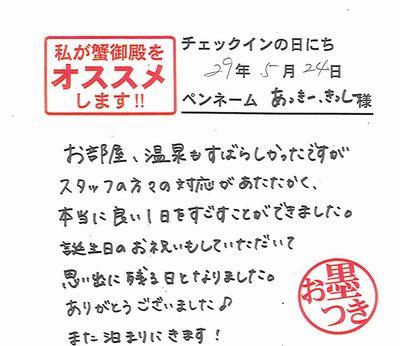 私が蟹御殿を
オススメ
します!!
チェックインの日にち
29年5月24日
ペンネーム あっきー、きっし様
お部屋、温泉もすばらしかったですが
スタッフの方々の対応があたたかく、
本当に良い1日をすごすことができました。
誕生日のお祝いもしていただいて
思い出に残る日となりました。
ありがとうございました♪
また泊まりにきます!
お墨つき